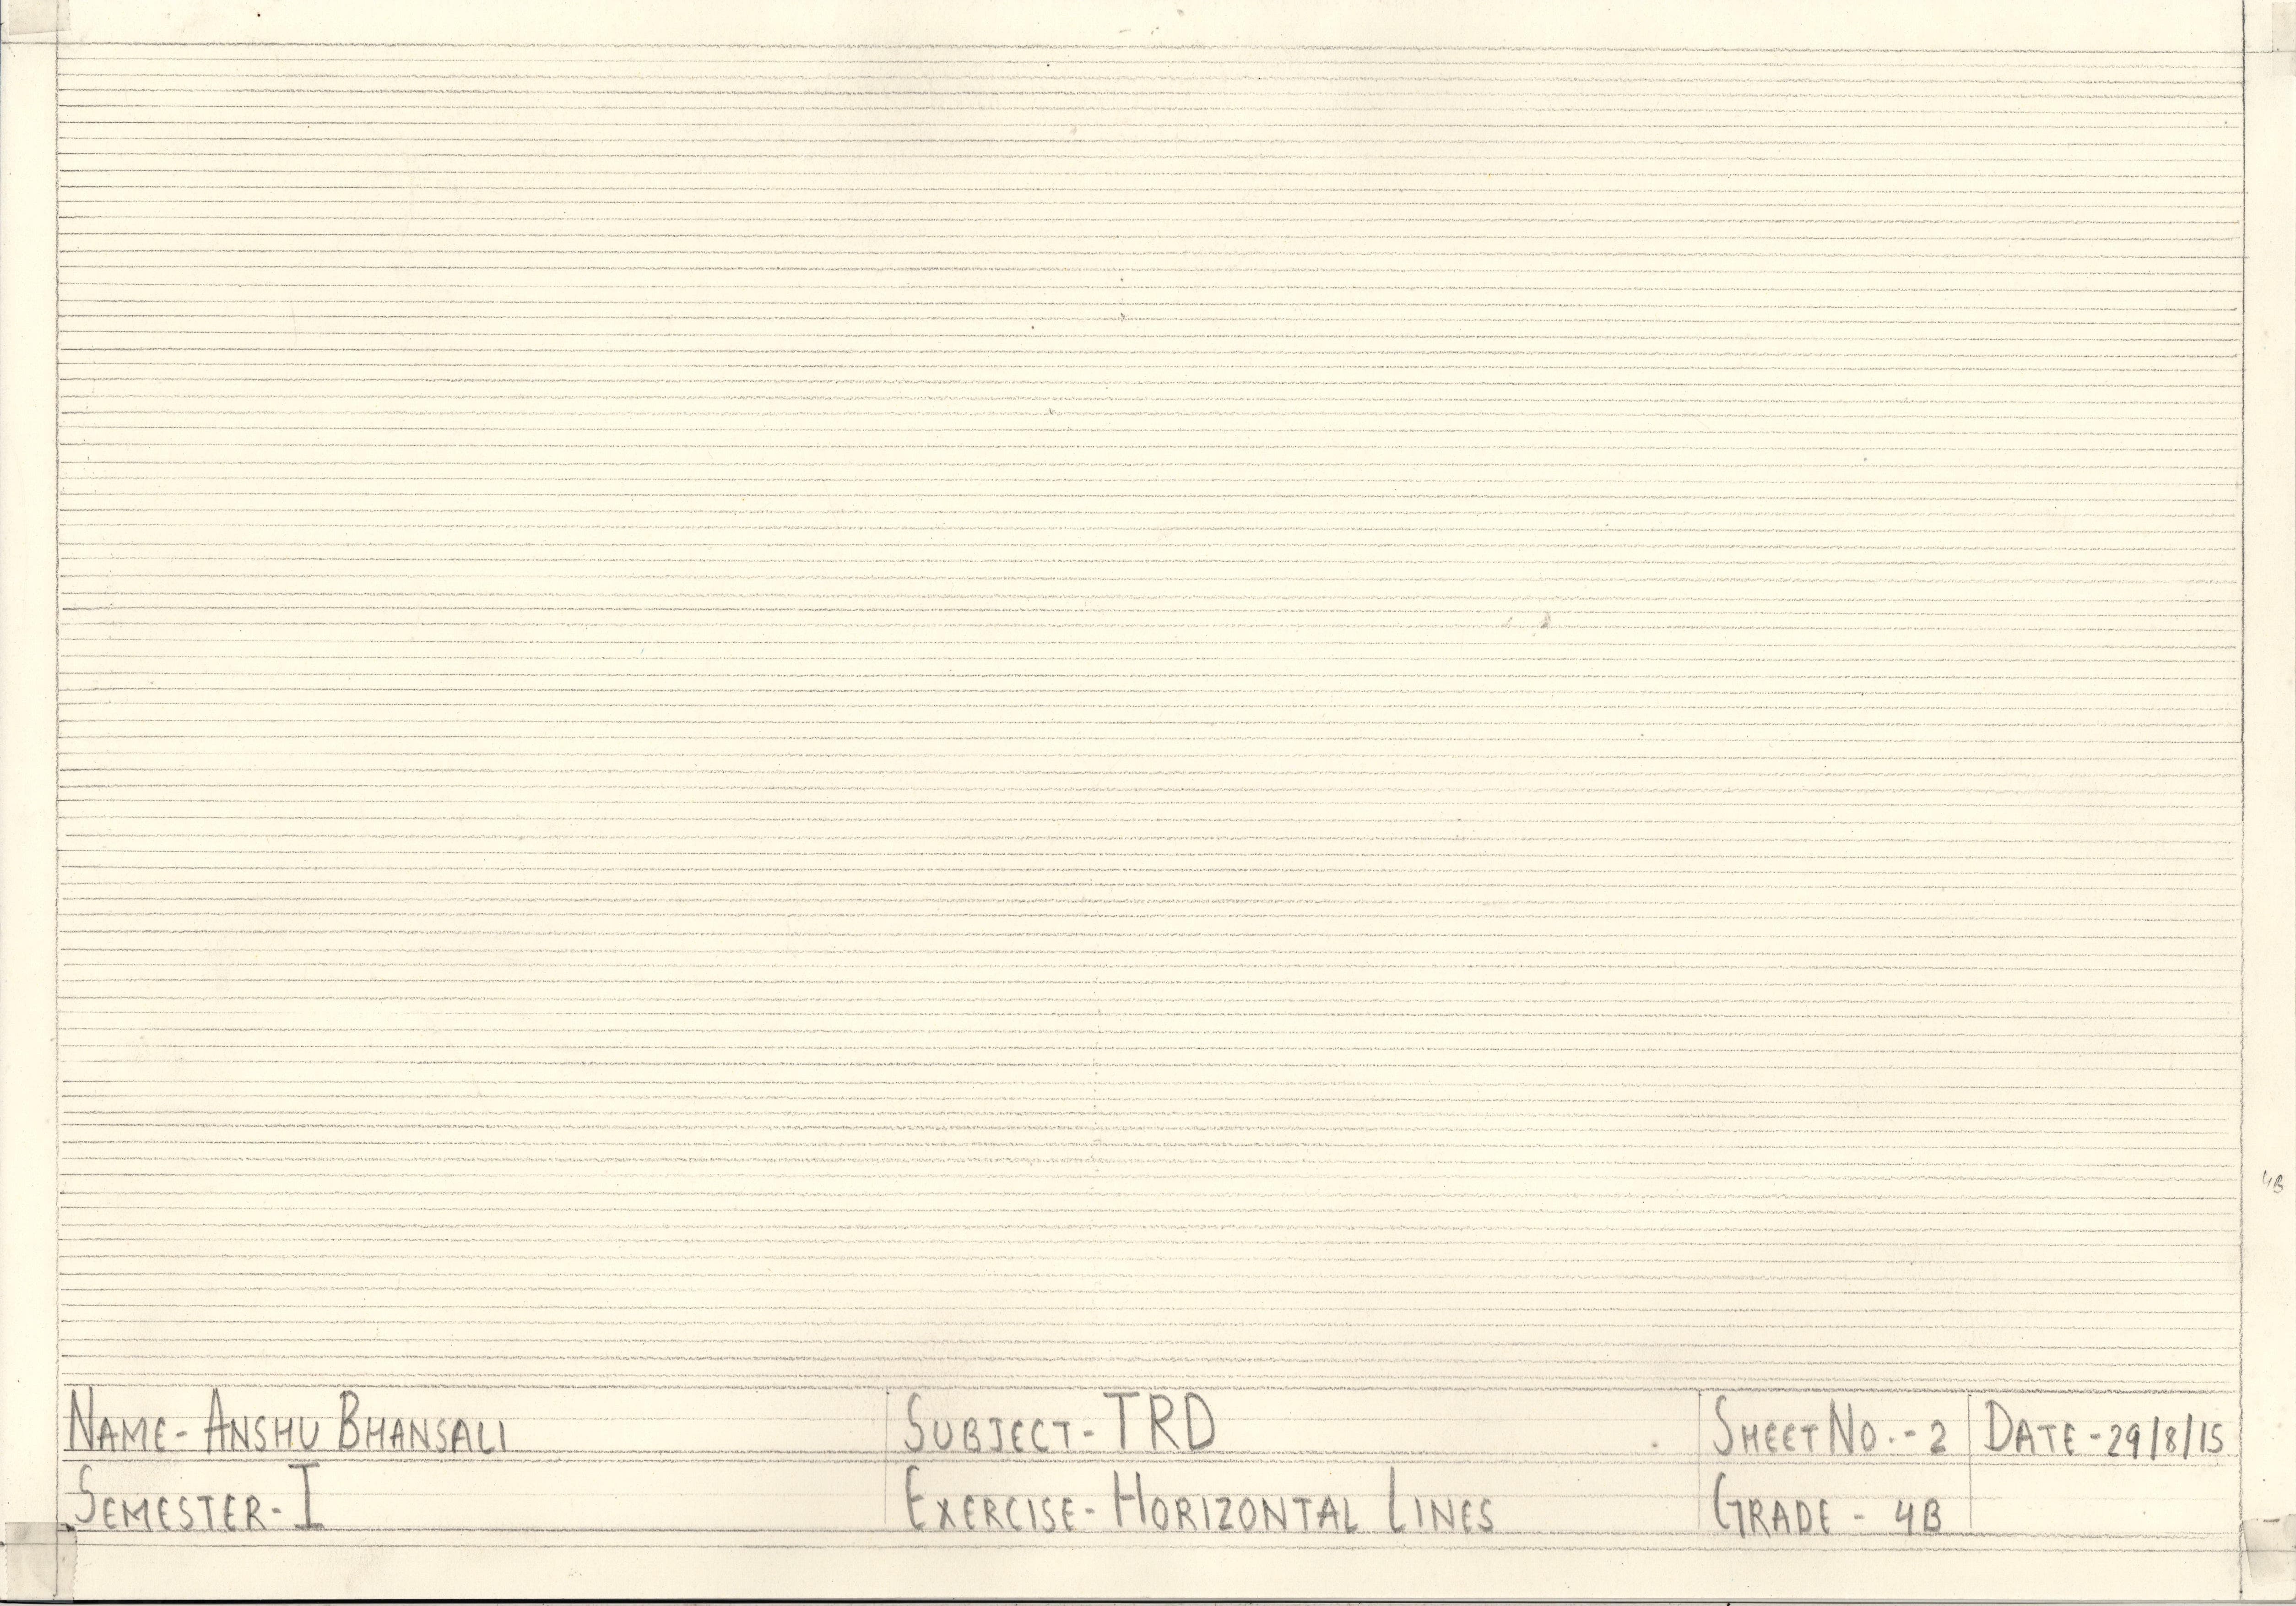 4B
NAME- ANSHU BHANSALI SUBJECT- TRD SHEET NO.- 2 DATE -29/8/15
SEMESTER- I EXERCISE- HORIZONTAL LINES GRADE - 4B